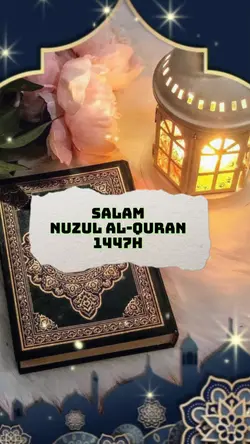 SALAM
NUZUL AL-QURAN
1447H